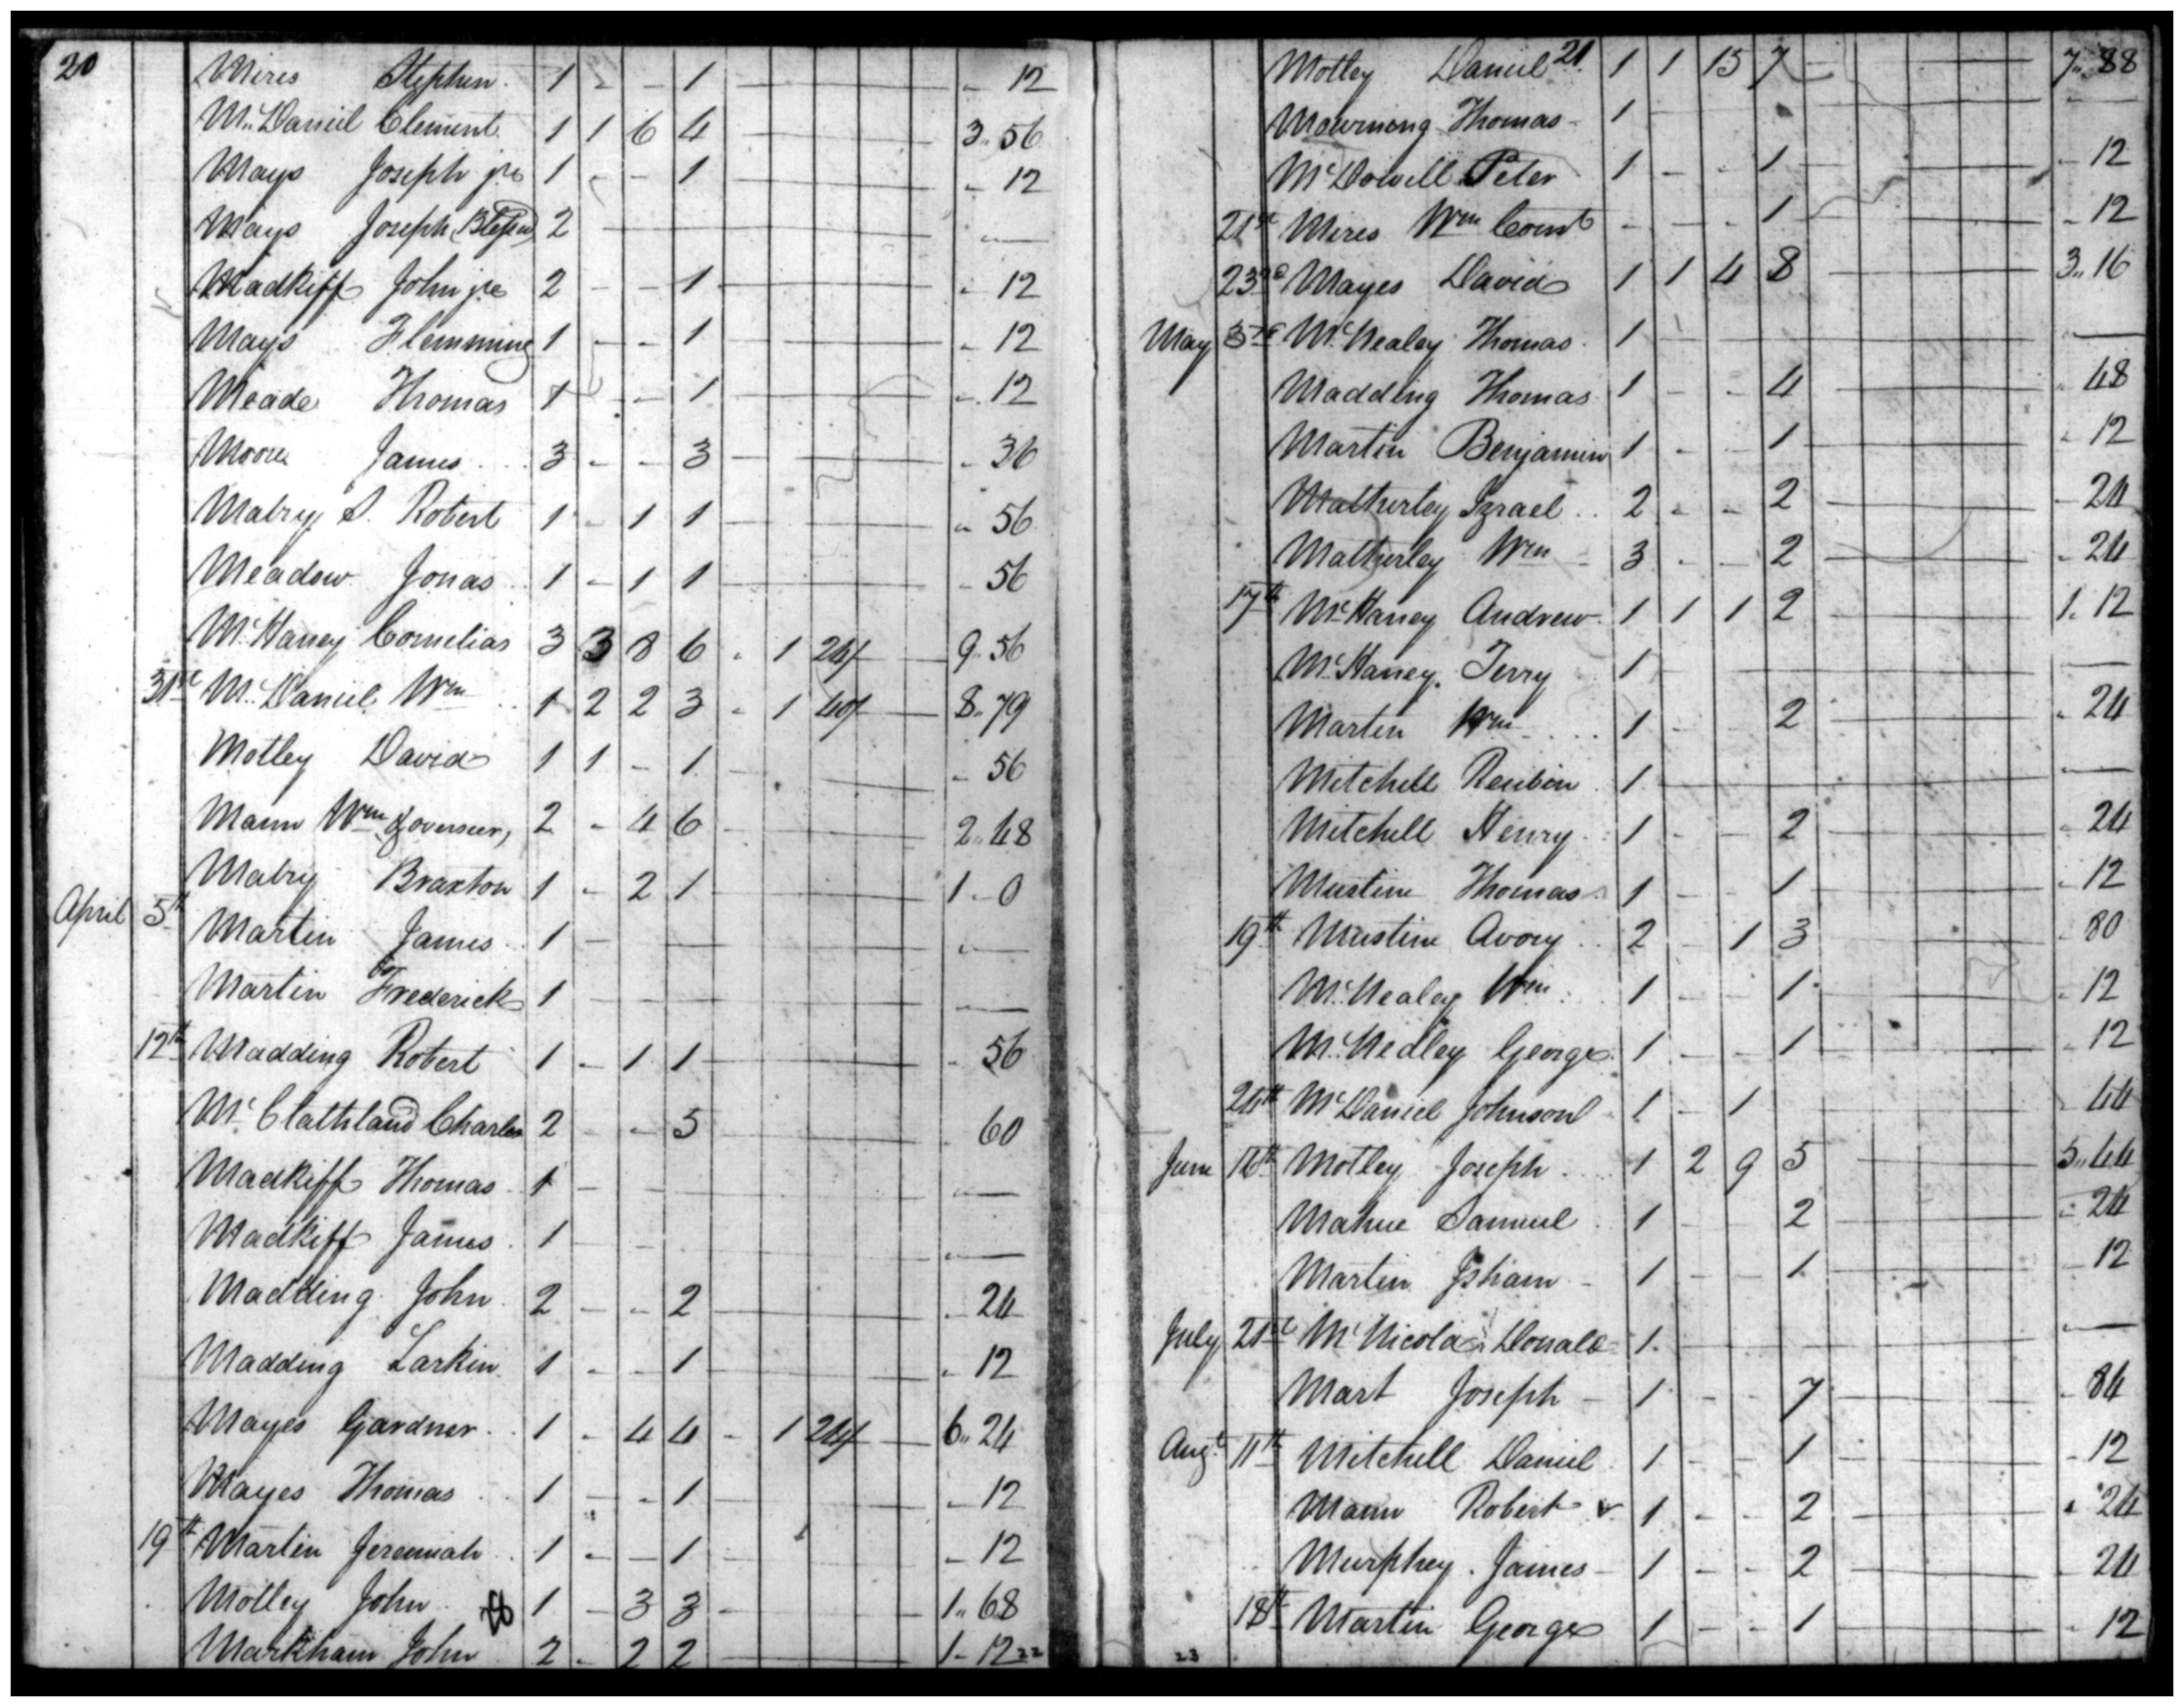 20
Mires Stephen. 1 - - 1 - 12
M. Daniel Clement 1 1 6 4 3.. 56
Mays Joseph jr 1 - - 1 - 12
Mays Joseph 2
Madkiff John jr 2 - - 1 - 12
Mays Flemming 1 - - 1 - 12
Meade Thomas 1 - - 1 - 12
Moore James 3 - - 3 - 36
Mabry S. Robert 1 - 1 1 - 56
Meadow Jonas 1 - 1 1 - 56
Mc Haney Cornelias 3 3 8 6 - 1 24/ 9- 56
31st M. Daniel Wm 1 2 2 3 - 1 40/ 8- 79
Motley David 1 1 - 1 - 56
Mann Wm & overseer, 2 - 4 6 2.. 48
Mabry Braxton 1 - 2 1 1 - 0
April 5th Martin James 1 -
Martin Frederick 1 -
12th Madding Robert 1 - 1 1 - 56
Mc. Clathland Charles 2 - - 5 60
Madkiff Thomas 1 -
Madkiff James 1
Madding John 2 - - 2 - 24
Madding Larkin 1 - - 1 - 12
Mayes Gardner 1 - 4 4 - 1 24/ 6.. 24
Mayes Thomas 1 - - 1 - 12
19th Martin Jeremiah 1 - - 1 - 12
Motley John 1 - 3 3 1.. 68
Markham John 2 - 2 2 1- 12
22
21
Motley Daniel 1 1 15 7 7.. 88
Mowrnong Thomas 1
Mc Dowell Peter 1 - - 1 - 12
21st Mires Wm Const - - - 1 - 12
23rd Mayes David 1 1 4 8 3.. 16
May 3rd Mc. Nealey Thomas 1
Madding Thomas 1 - - 4 48
Martin Benjamin 1 - - 1 - 12
Matherley Izrael 2 - - 2 - 24
Matherley Wm 3 - - 2 - 24
17th Mc Haney Andrew 1 1 1 2 1. 12
Mc Haney Terry 1
Martin Wm 1 - 2 - 24
Mitchell Reuben 1
Mitchell Henry 1 - - 2 - 24
Mustine Thomas 1 - - 1 - 12
19th Mustine Avory 2 - 1 3 80
Mc. Nealey Wm 1 - - 1 - 12
Mc. Nedley George 1 - - 1 - 12
24th Mc Daniel Johnson 1 - 1 44
June 16th Motley Joseph 1 2 9 5 5.. 44
Mahue Samuel 1 - 2 - 24
Martin Isham 1 - - 1 12
July 21st Mc Nicola Donald 1.
Mart Joseph 1 - - 7 - 84
Augt. 11th Mitchell Daniel 1 - - 1 - 12
Mann Robert 1 - - 2 24
Murphey James 1 - - 2 24
18th Martin George 1 - - 1 - 12
23